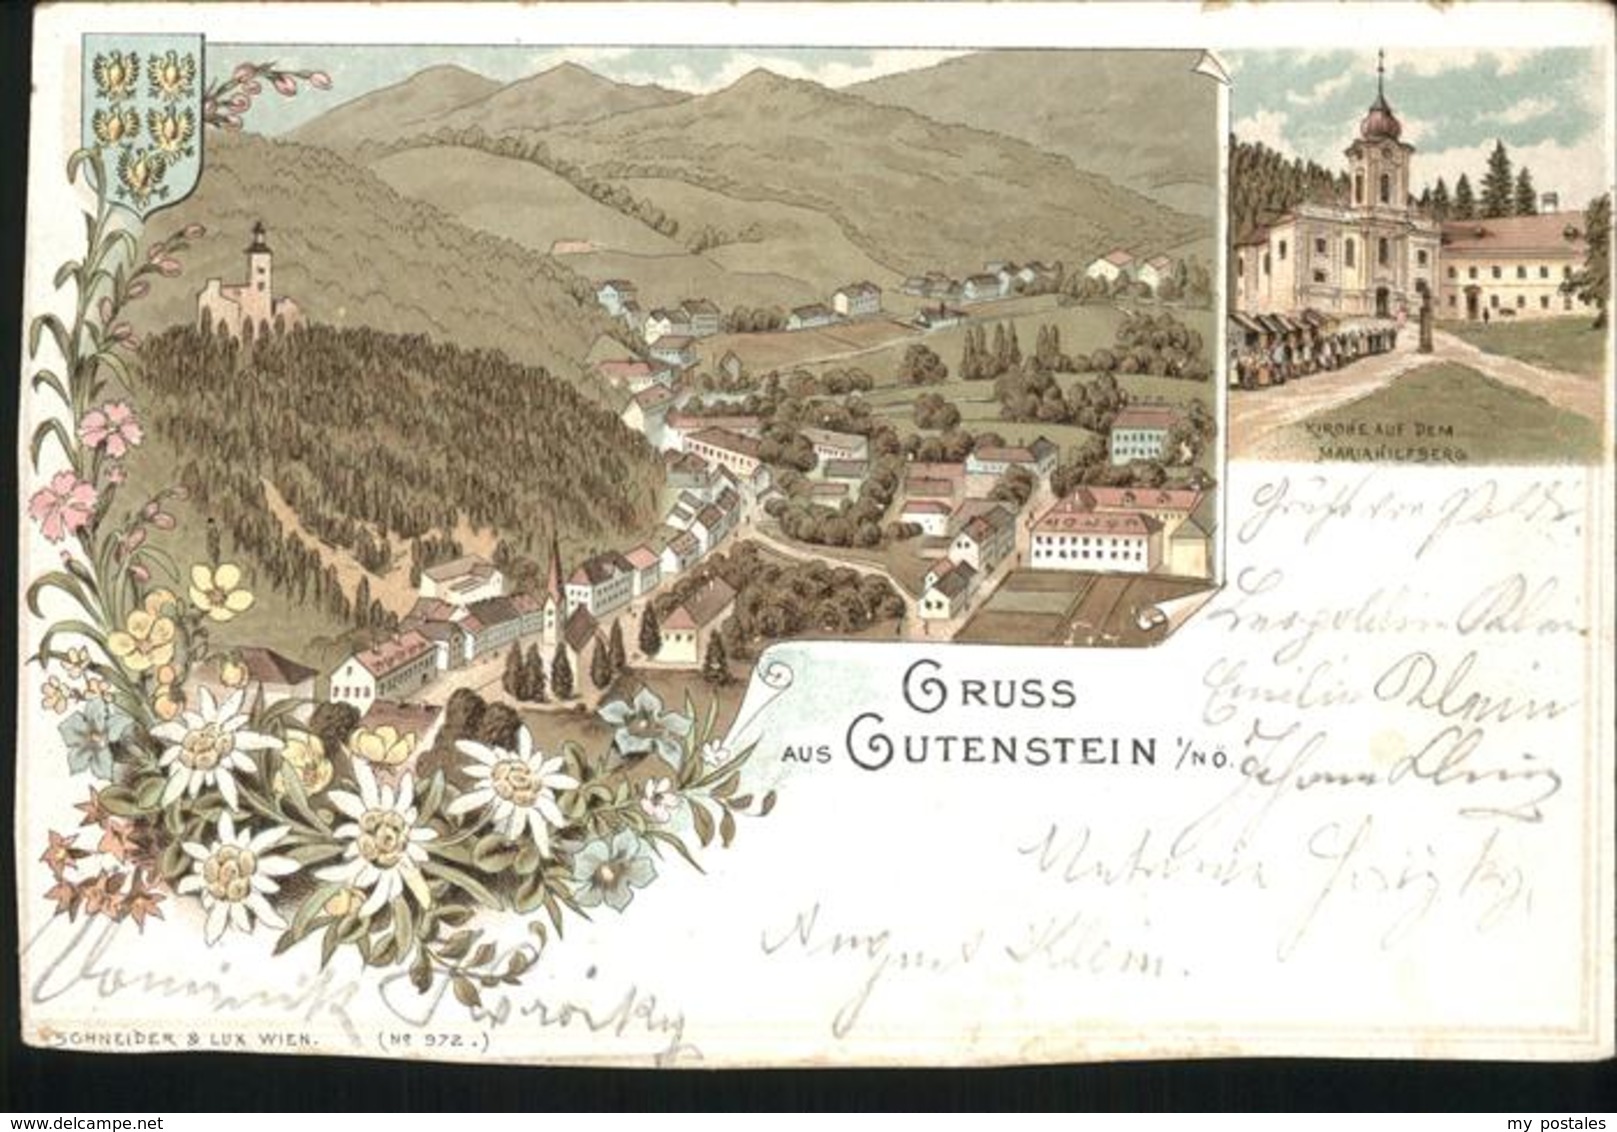 KIRCHE AUF DEM
MARIAHILFBERG
Grüße von Poldi.
GRUSS
AUS GUTENSTEIN I/NÖ.
Leopoldin
Emilie Klein
Johann Klein
August Klein.
Dominik
SCHNEIDER & LUX WIEN. (Nº 972.)
www.delcampe.net
my postales